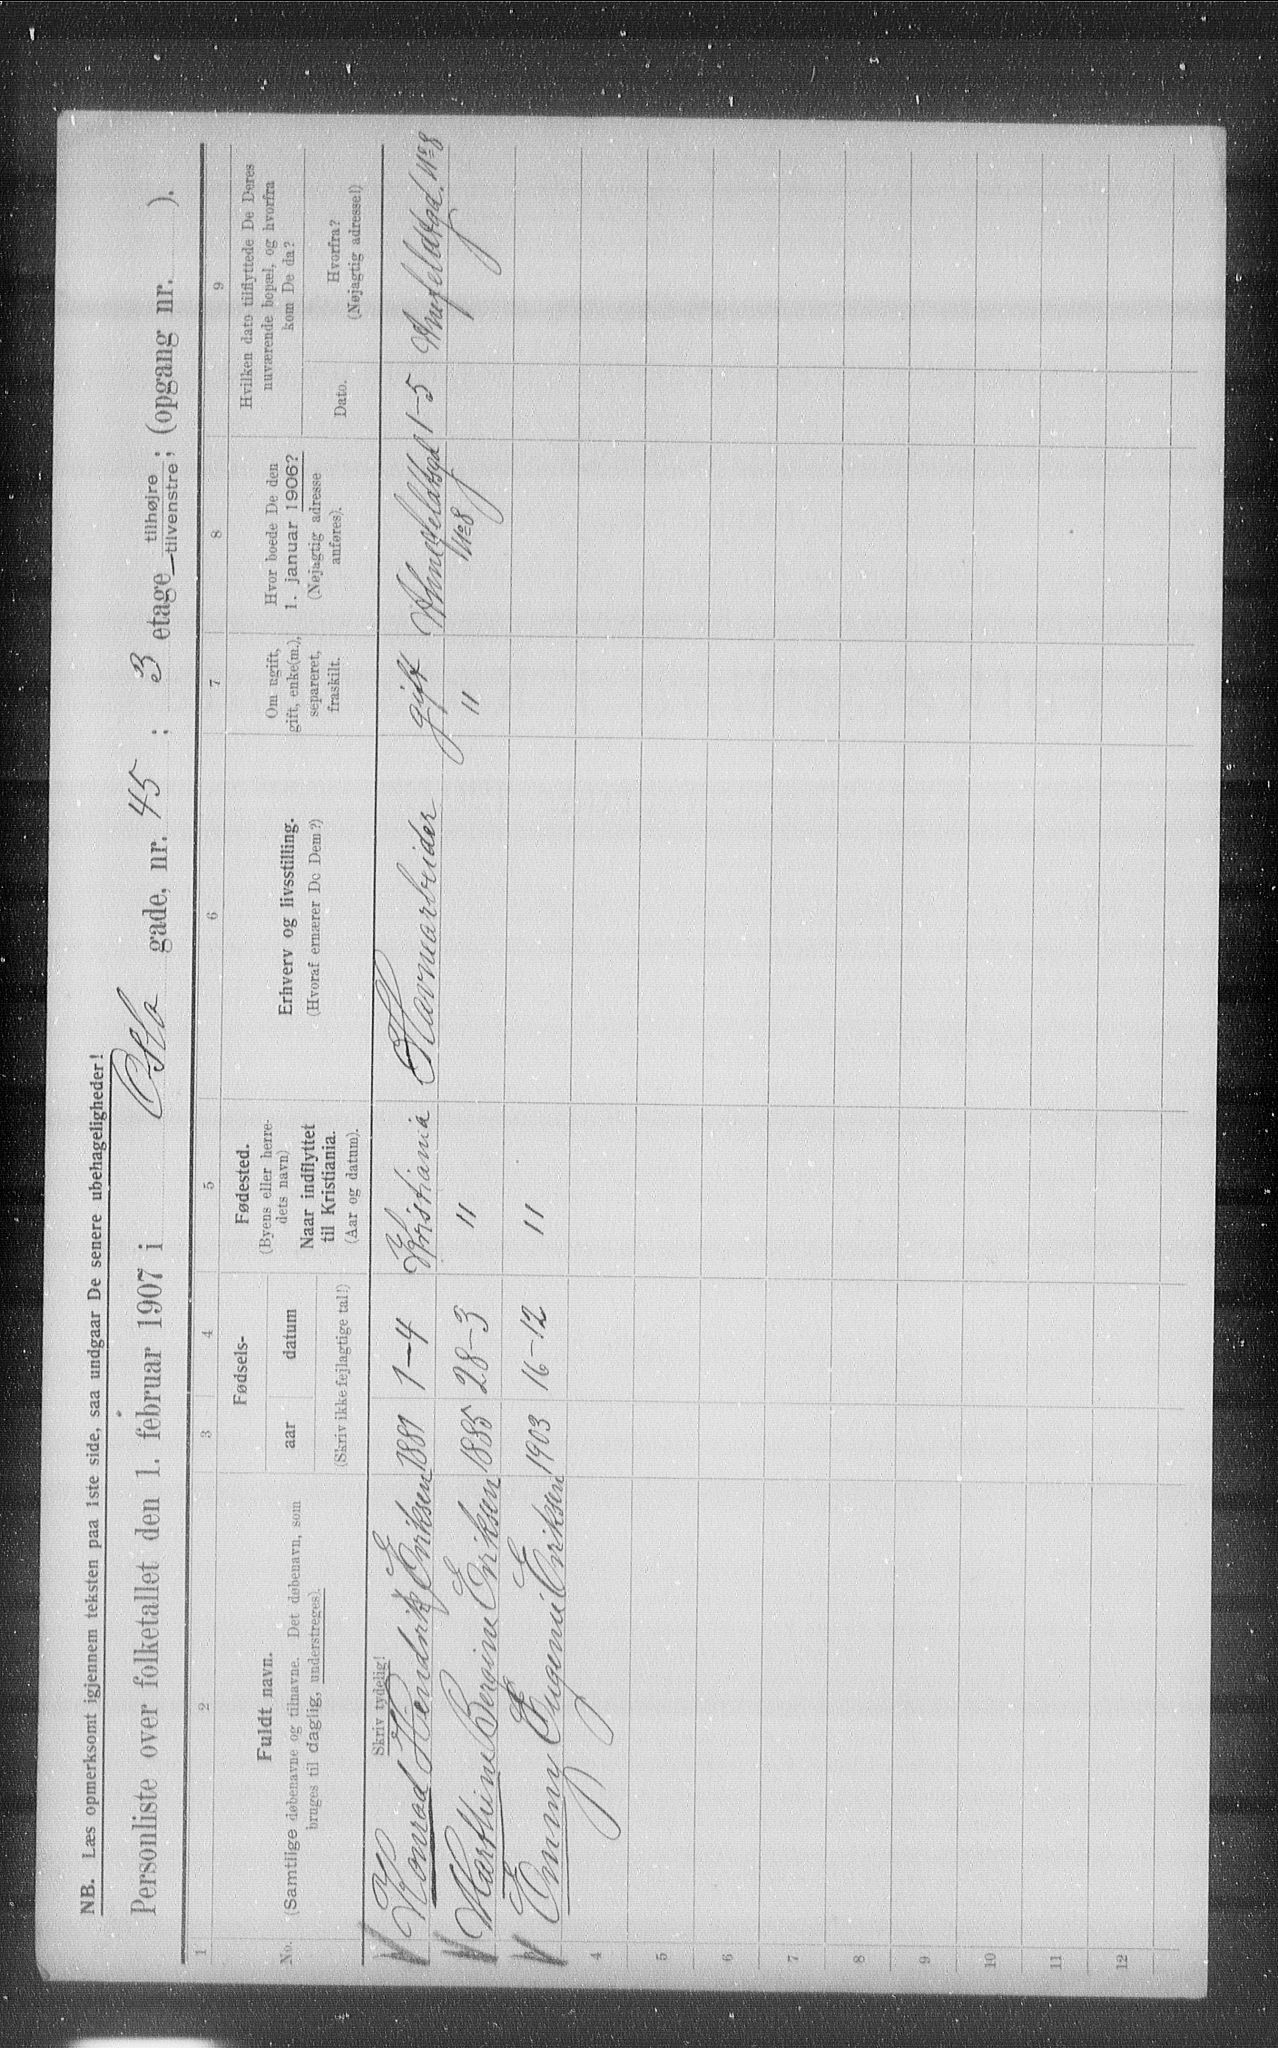 NB. Læs opmerksomt igjennem teksten paa 1ste side, saa undgaar De senere ubehageligheder!
Personliste over folketallet den 1. februar 1907 i Oslo gade, nr. 45; 3 etage tilhøjre; (opgang nr. ).
tilvenstre;
1 2 3 4 5 6 7 8 9
No.
Fuldt navn.
(Samtlige døbenavne og tilnavne. Det døbenavn, som
bruges til daglig, understreges).
Skriv tydelig!
Fødsels-
aar datum
(Skriv ikke fejlagtige tal!)
Fødested.
(Byens eller herre-
dets navn)
Naar indflyttet
til Kristiania.
(Aar og datum).
Erhverv og livsstilling.
(Hvoraf ernærer De Dem?)
Om ugift,
gift, enke(m.),
separeret,
fraskilt.
Hvor boede De den
1. januar 1906?
(Nøjagtig adresse
anføres).
Hvilken dato tilflyttede De Deres
nuværende bopæl, og hvorfra
kom De da?
Dato.
Hvorfra?
(Nøjagtig adresse!)
Konrad Hendrik Eriksen 1881 1-4 Kristiania Havnearbeider gift No 8 1-5 No 8
Marthine Bergine Eriksen 1885 28-3 " "
Emmy Eugenie Eriksen 1903 16-12 "
4
5
6
7
8
9
10
11
12